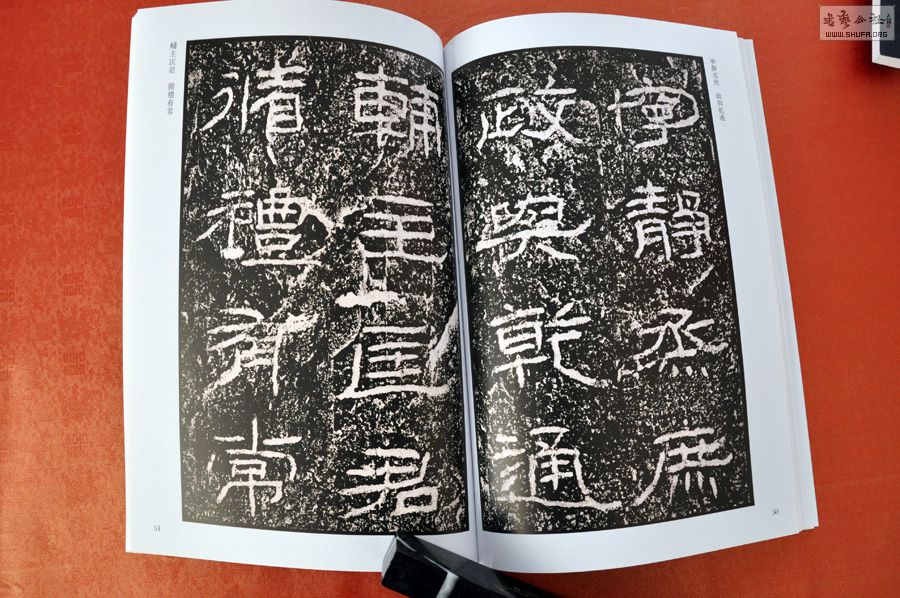 寧靜烝庶
政與乾通
輔主匡君
循禮有常
寧靜烝庶 政與乾通
輔主匡君 循禮有常
50
51
書藝公社
WWW.SHUFA.ORG